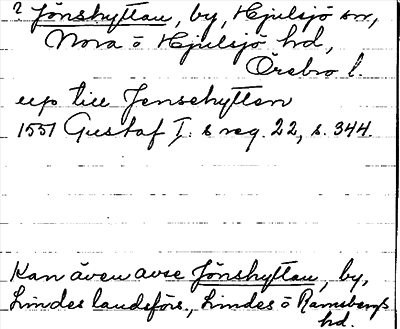 ? Jönshyttan, by, Hjulsjö sn,
Nora o Hjulsjö hd,
Örebro l.
up till Jensehytten
1551 Gustaf I:s reg. 22, s. 344.
Kan även avse Jönshyttan, by,
Lindes landsförs., Lindes o Ramsbergs
hd.